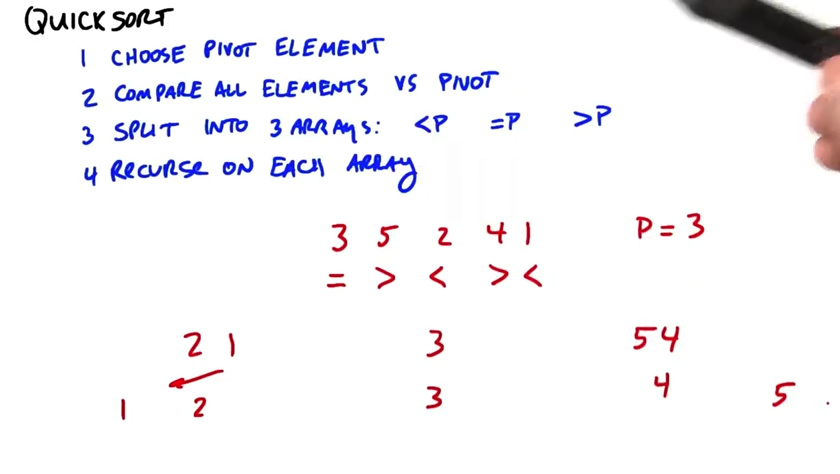 QUICKSORT
1 CHOOSE PIVOT ELEMENT
2 COMPARE ALL ELEMENTS VS PIVOT
3 SPLIT INTO 3 ARRAYS: <P =P >P
4 RECURSE ON EACH ARRAY
3 5 2 4 1 P = 3
= > < > <
2 1 3 5 4
1 2 3 4 5